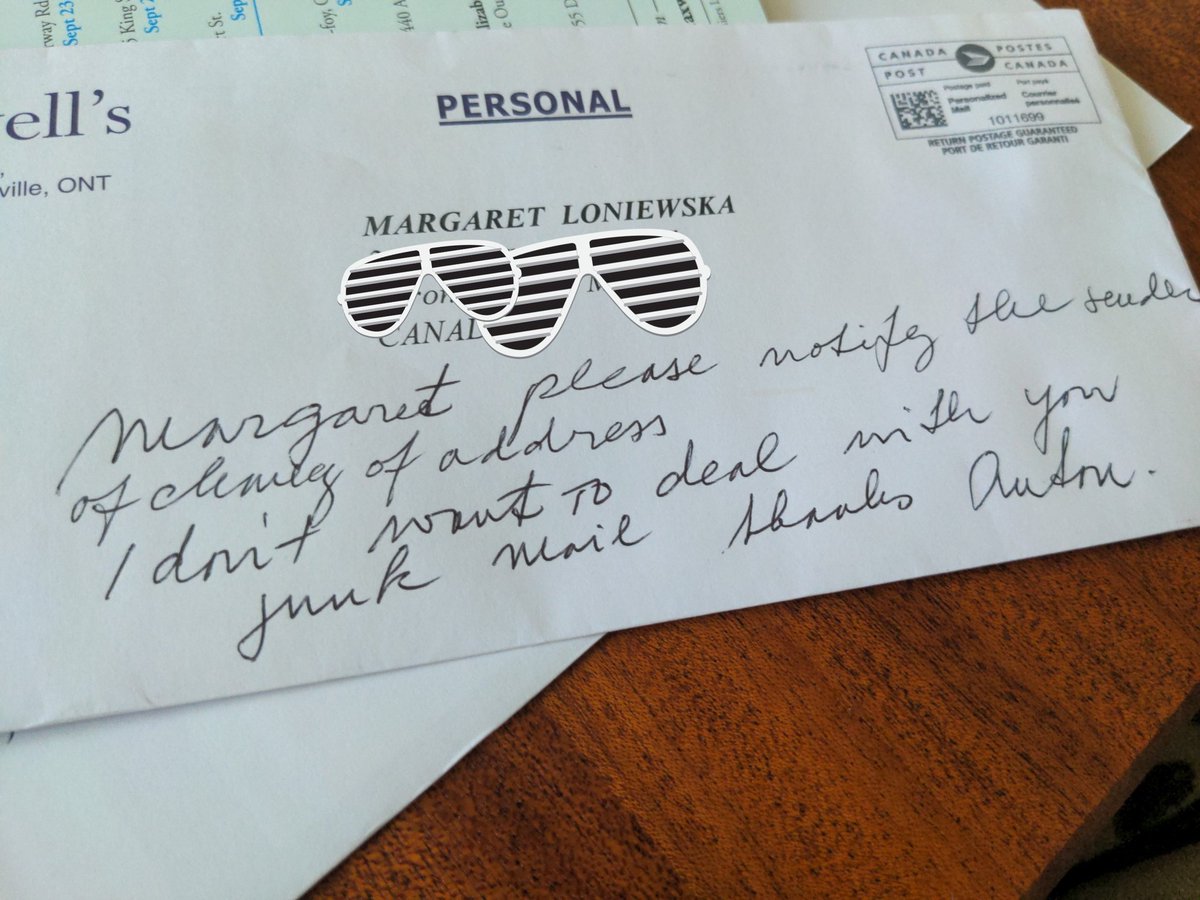 rway Rd
Sept 23
King S
Sept 2
rt St.
Sep
-foy, C
440 A
lizab
e Ou
55 D
ell's
ville, ONT
PERSONAL
CANADA POSTES
POST CANADA
Postage paid Port payé
Personalized Courrier
Mail personnalisé
1011699
RETURN POSTAGE GUARANTEED
PORT DE RETOUR GARANTI
MARGARET LONIEWSKA
CANAD
Margaret please notify the sender
of of address
I don't want to deal with you
junk mail thanks Anton.